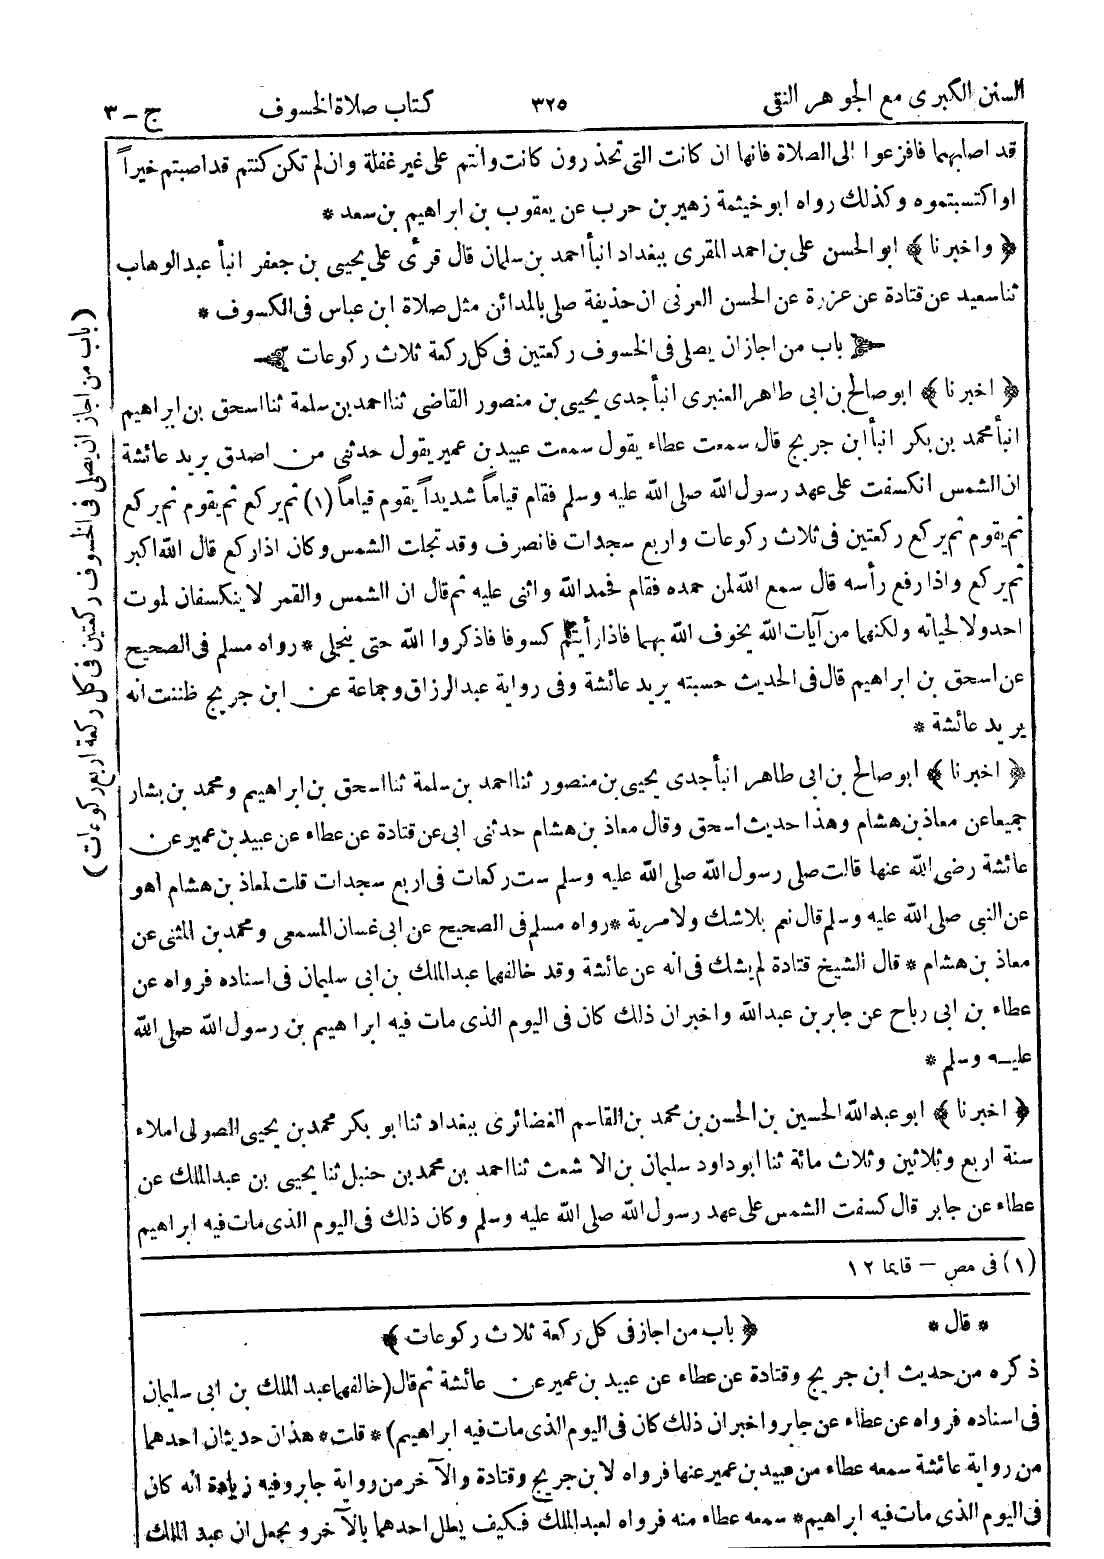 السنن الكبرى مع الجوهر النقى ٣٢٥ كتاب صلاة الخسوف ج - ٣
قد اصابهما فافزعوا الى الصلاة فانها ان كانت التى تحذرون كانت وانتم على غير غفلة وان لم تكن كنتم قد اصبتم خيراً
او اكتسبتموه وكذلك رواه ابو خيثمة زهير بن حرب عن يعقوب بن ابراهيم بن سعد *
﴿ واخبرنا ﴾ ابو الحسن على بن احمد المقرى ببغداد انبأ احمد بن سلمان قال قرئ على يحيى بن جعفر انبأ عبد الوهاب
ثنا سعيد عن قتادة عن عزرة عن الحسن العرنى ان حذيفة صلى بالمدائن مثل صلاة ابن عباس فى الكسوف *
باب من اجاز ان يصلى فى الخسوف ركعتين فى كل ركعة ثلاث ركوعات
﴿ اخبرنا ﴾ ابو صالح بن ابى طاهر العنبرى انبأ جدى يحيى بن منصور القاضى ثنا احمد بن سلمة ثنا اسحق بن ابراهيم
انبأ محمد بن بكر انبأ ابن جريج قال سمعت عطاء يقول سمعت عبيد بن عمير يقول حدثنى من اصدق يريد عائشة
ان الشمس انكسفت على عهد رسول الله صلى الله عليه وسلم فقام قياماً شديداً يقوم قياماً (١) ثم يركع ثم يقوم ثم يركع
ثم يقوم ثم يركع ركعتين فى ثلاث ركوعات واربع سجدات فانصرف وقد تجلت الشمس وكان اذا ركع قال الله اكبر
ثم يركع واذا رفع رأسه قال سمع الله لمن حمده فقام فحمد الله واثنى عليه ثم قال ان الشمس والقمر لا ينكسفان لموت
احد ولا لحياته ولكنهما من آيات الله يخوف الله بهما فاذا رأيتم كسوفا فاذكروا الله حتى ينجلى * رواه مسلم فى الصحيح
عن اسحق بن ابراهيم قال فى الحديث حسبته يريد عائشة وفى رواية عبد الرزاق وجماعة عن ابن جريج ظننت انه
يريد عائشة *
﴿ اخبرنا ﴾ ابو صالح بن ابى طاهر انبأ جدى يحيى بن منصور ثنا احمد بن سلمة ثنا اسحق بن ابراهيم ومحمد بن بشار
جميعا عن معاذ بن هشام وهذا حديث اسحق وقال معاذ بن هشام حدثنى ابى عن قتادة عن عطاء عن عبيد بن عمير عن
عائشة رضى الله عنها قالت صلى رسول الله صلى الله عليه وسلم ست ركعات فى اربع سجدات قلت لمعاذ بن هشام أهو
عن النبى صلى الله عليه وسلم قال نعم بلا شك ولا مرية * رواه مسلم فى الصحيح عن ابى غسان المسمعى ومحمد بن المثنى عن
معاذ بن هشام * قال الشيخ قتادة لم يشك فى انه عن عائشة وقد خالفهما عبد الملك بن ابى سليمان فى اسناده فرواه عن
عطاء بن ابى رباح عن جابر بن عبد الله واخبر ان ذلك كان فى اليوم الذى مات فيه ابراهيم بن رسول الله صلى الله
عليه وسلم *
﴿ اخبرنا ﴾ ابو عبد الله الحسين بن الحسن بن محمد بن القاسم الغضائرى ببغداد ثنا ابو بكر محمد بن يحيى الصولى املاء
سنة اربع وثلاثين وثلاث مائة ثنا ابو داود سليمان بن الاشعث ثنا احمد بن محمد بن حنبل ثنا يحيى بن عبد الملك عن
عطاء عن جابر قال كسفت الشمس على عهد رسول الله صلى الله عليه وسلم وكان ذلك فى اليوم الذى مات فيه ابراهيم
(١) فى مص – قايما ١٢
* قال * ﴿ باب من اجاز فى كل ركعة ثلاث ركوعات ﴾
ذكره من حديث ابن جريج وقتادة عن عطاء عن عبيد بن عمير عن عائشة ثم قال (خالفهما عبد الملك بن ابى سليمان
فى اسناده فرواه عن عطاء عن جابر واخبر ان ذلك كان فى اليوم الذى مات فيه ابراهيم) * قلت * هذان حديثان احدهما
من رواية عائشة سمعه عطاء من عبيد بن عمير عنها فرواه لابن جريج وقتادة والآخر من رواية جابر وفيه زيادة انه كان
فى اليوم الذى مات فيه ابراهيم * سمعه عطاء منه فرواه لعبد الملك فكيف يعلل احدهما بالآخر ويجعل ان عبد الملك
(باب من اجاز ان يصلى فى الخسوف ركعتين فى كل ركعة اربع ركوعات)